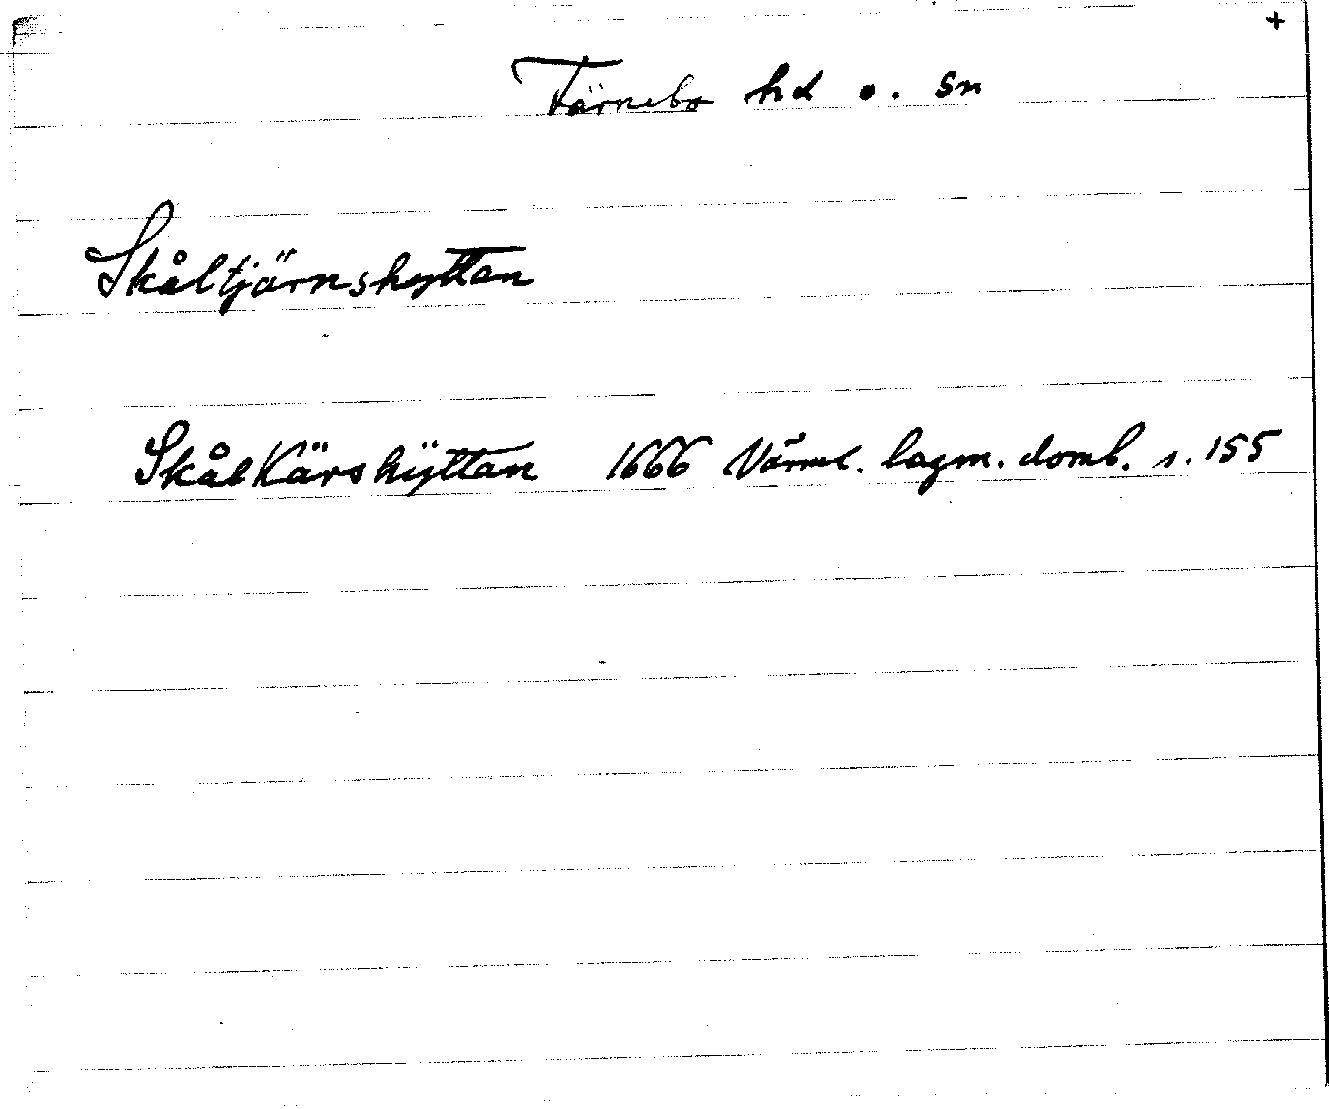 +
Färnebo hd o. sn
Skåltjärnshyttan
SkålKärshÿttan 1666 Värml. lagm. domb. s. 155